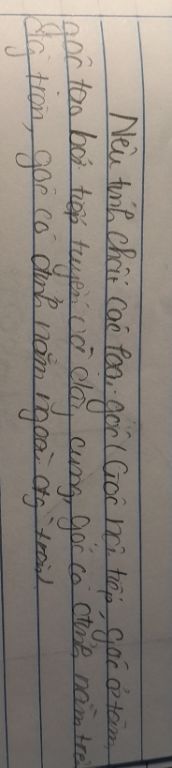 Nêu tính chất các loại góc (Góc nội tiếp, góc ở tâm,
góc tạo bởi tiếp tuyến và dây cung, góc có đỉnh nằm trê
đg tròn, góc có đỉnh nằm ngoài đg tròn)